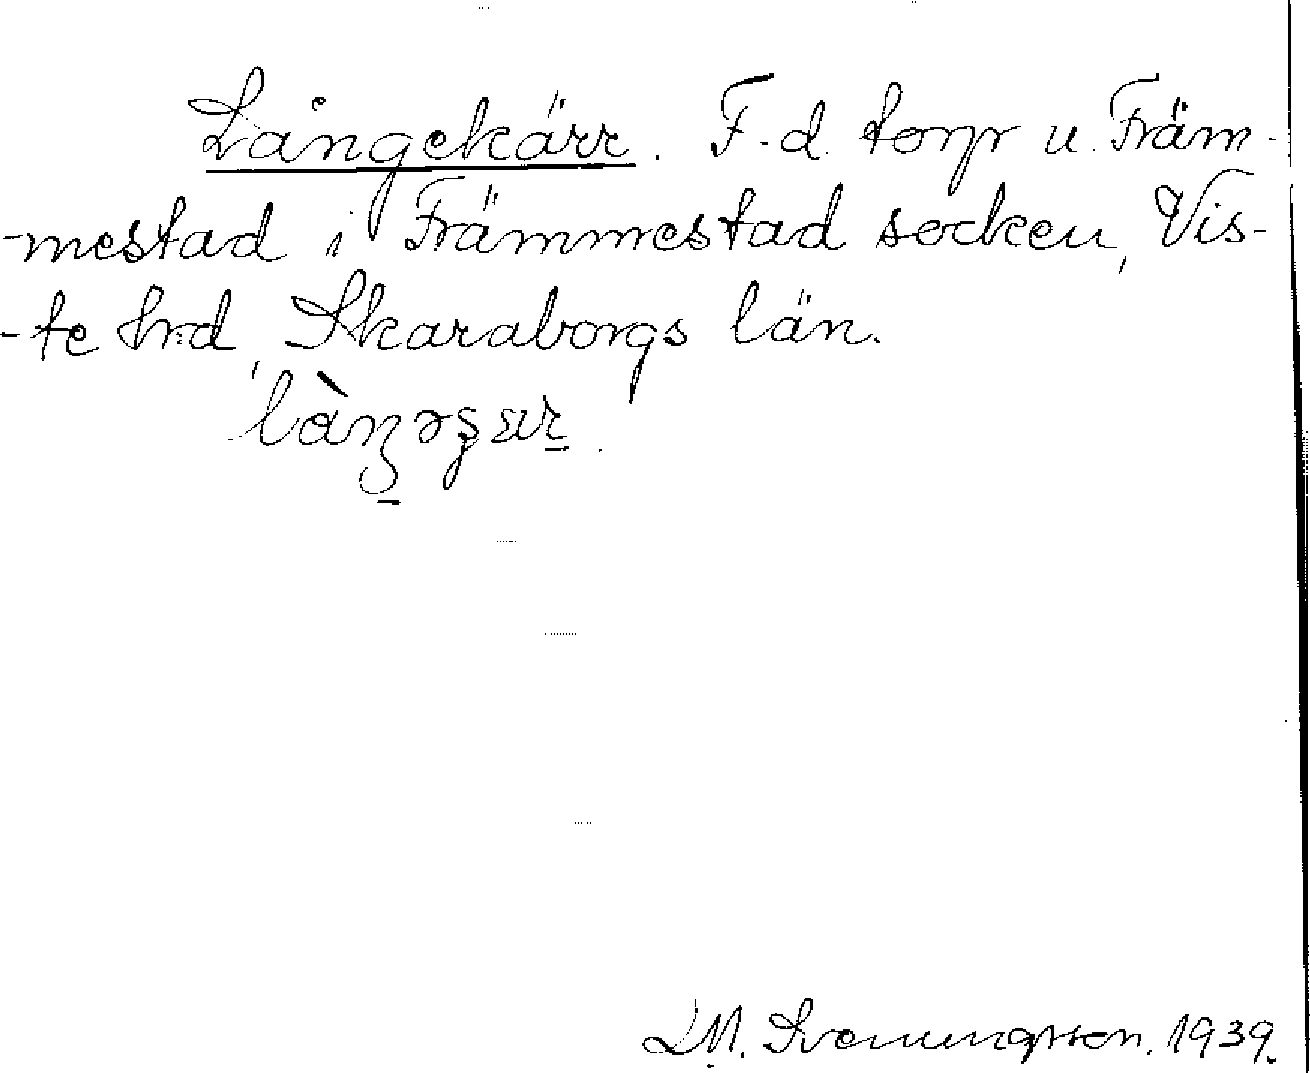 Långekärr. F.d. torp u. Främ-
-mestad i Främmestad socken, Vis-
-te hrd, Skaraborgs län.
D.M. Svenungsson. 1939.